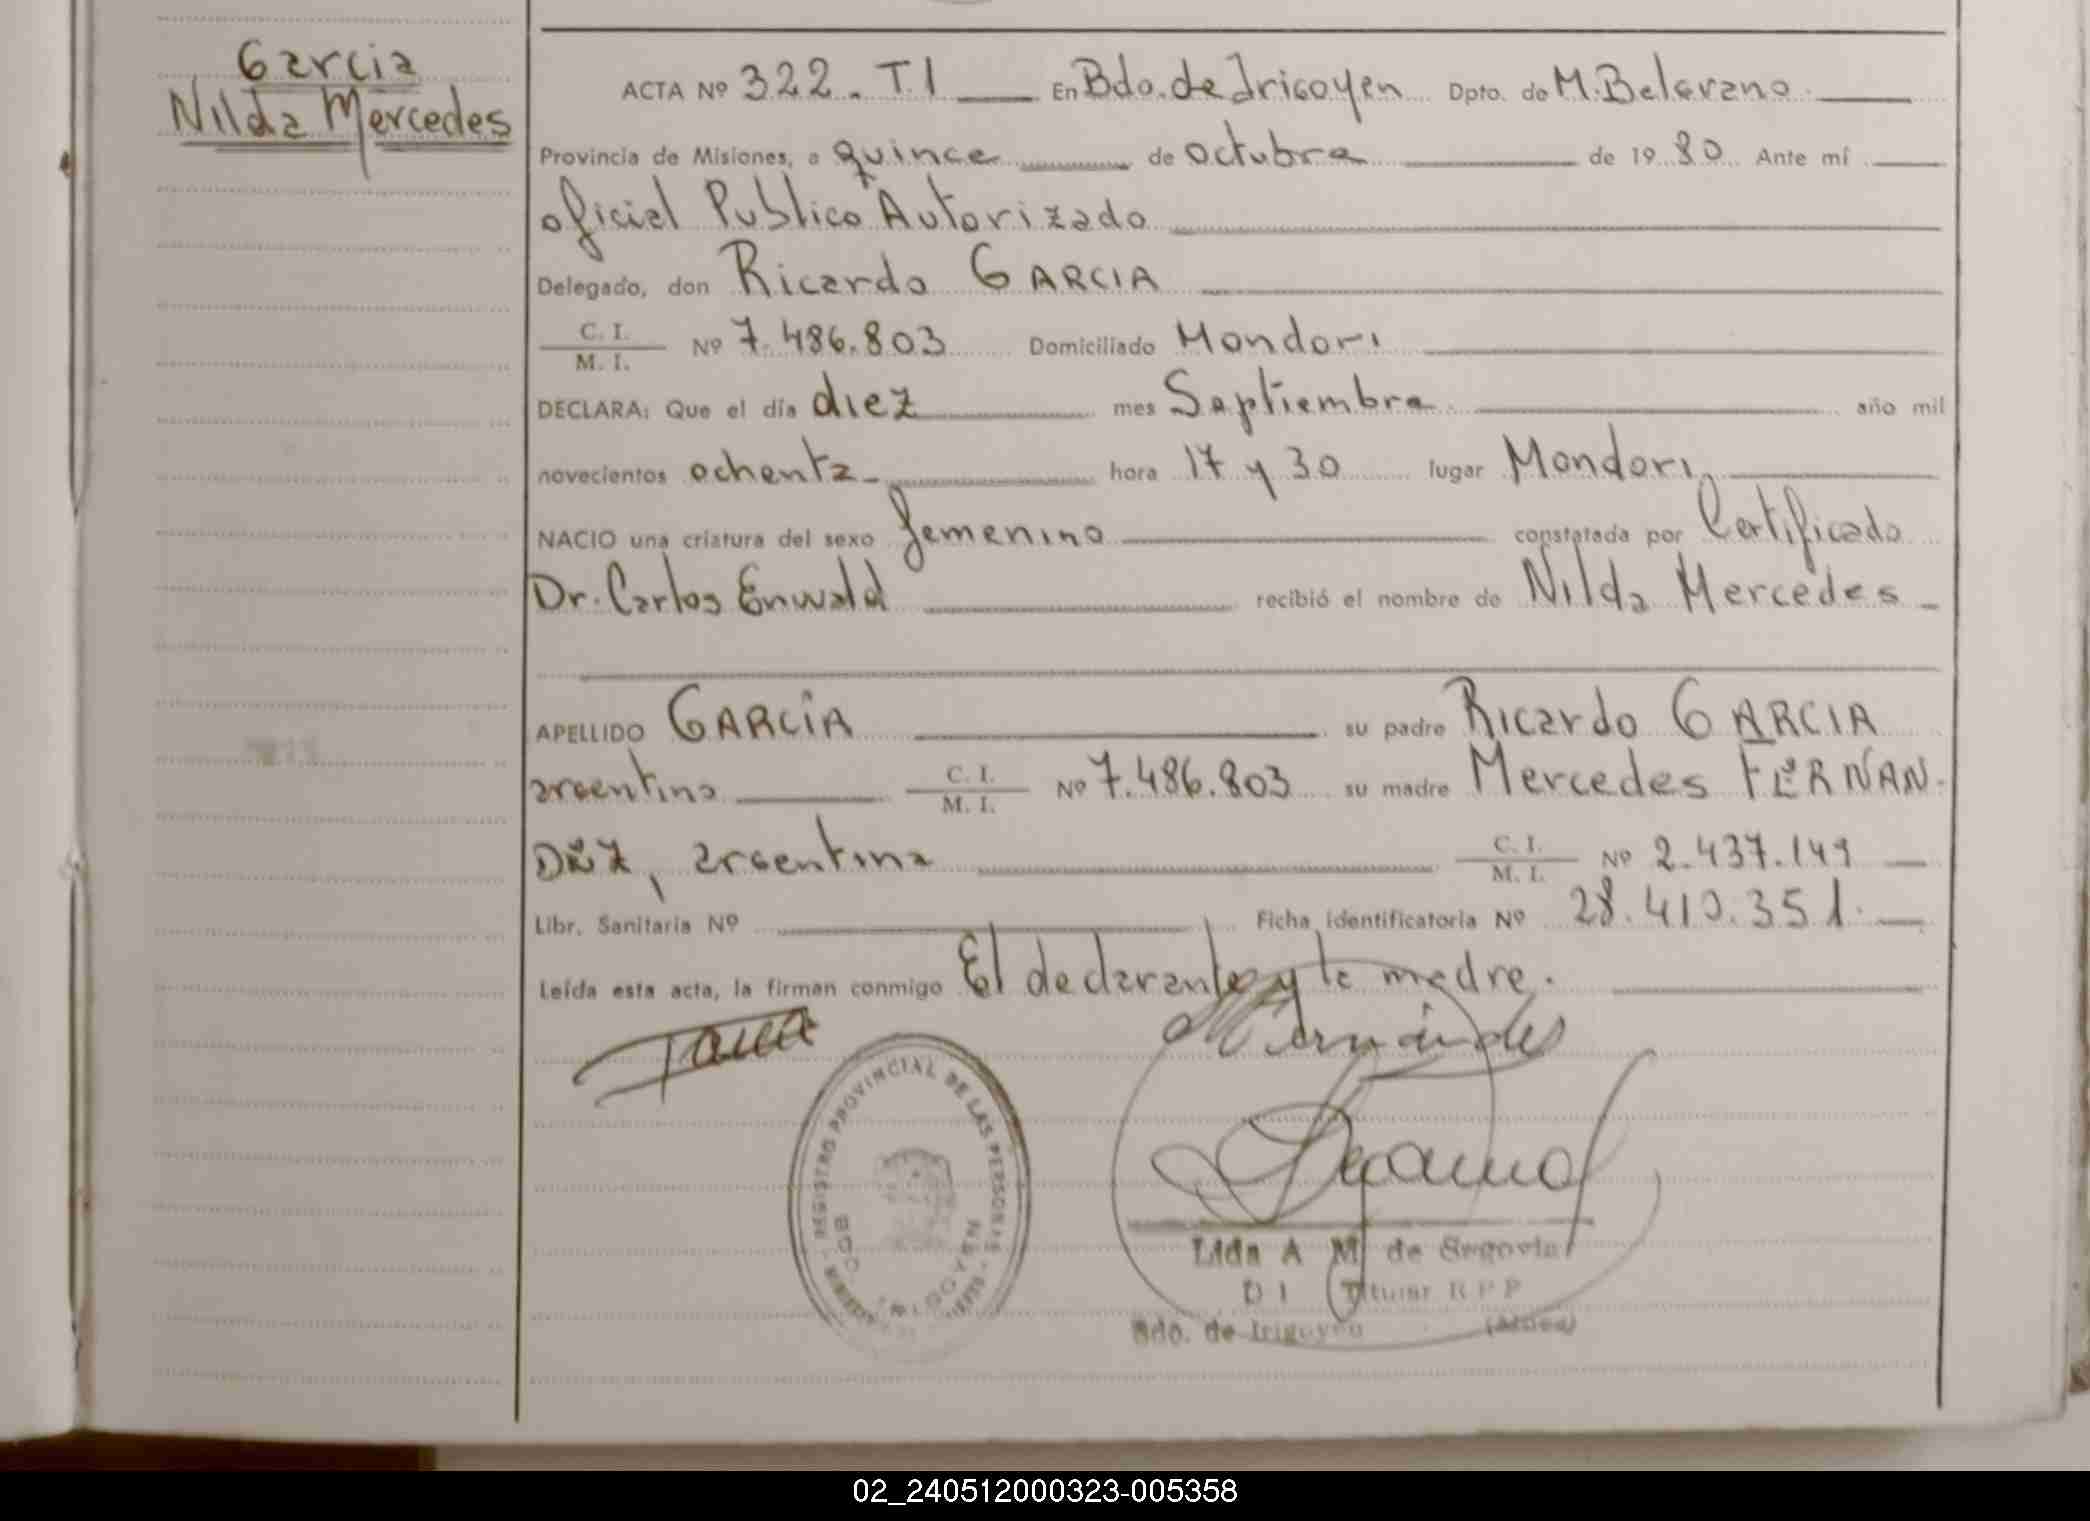 Garcia
Nilda Mercedes
ACTA Nº 322. T.I En Bdo. de Irigoyen Dpto. de M. Belgrano
Provincia de Misiones, a quince de octubre de 1980 Ante mí
oficial Publico Autorizado
Delegado, don Ricardo GARCIA
C. I.
M. I. Nº 7.486.803 Domiciliado Mondori
DECLARA: Que el día diez mes Septiembre año mil
novecientos ochenta hora 17 y 30 lugar Mondori
NACIO una criatura del sexo femenino constatada por Certificado
Dr. Carlos Enwald recibió el nombre de Nilda Mercedes
APELLIDO GARCÍA su padre Ricardo GARCIA
argentino C. I. M. I. Nº 7.486.803 su madre Mercedes FERNAN-
DEZ, argentina C. I. M. I. Nº 2.437.149
Libr. Sanitaria Nº Ficha identificatoria Nº 28.410.351.
Leída esta acta, la firman conmigo El declarante y la madre.
REGISTRO PROVINCIAL DE LAS PERSONAS
BDO. IRIGOYEN
Lida A M de Segovia
Titular R P P
Bdo. de Irigoyen (Mnes)
02_240512000323-005358